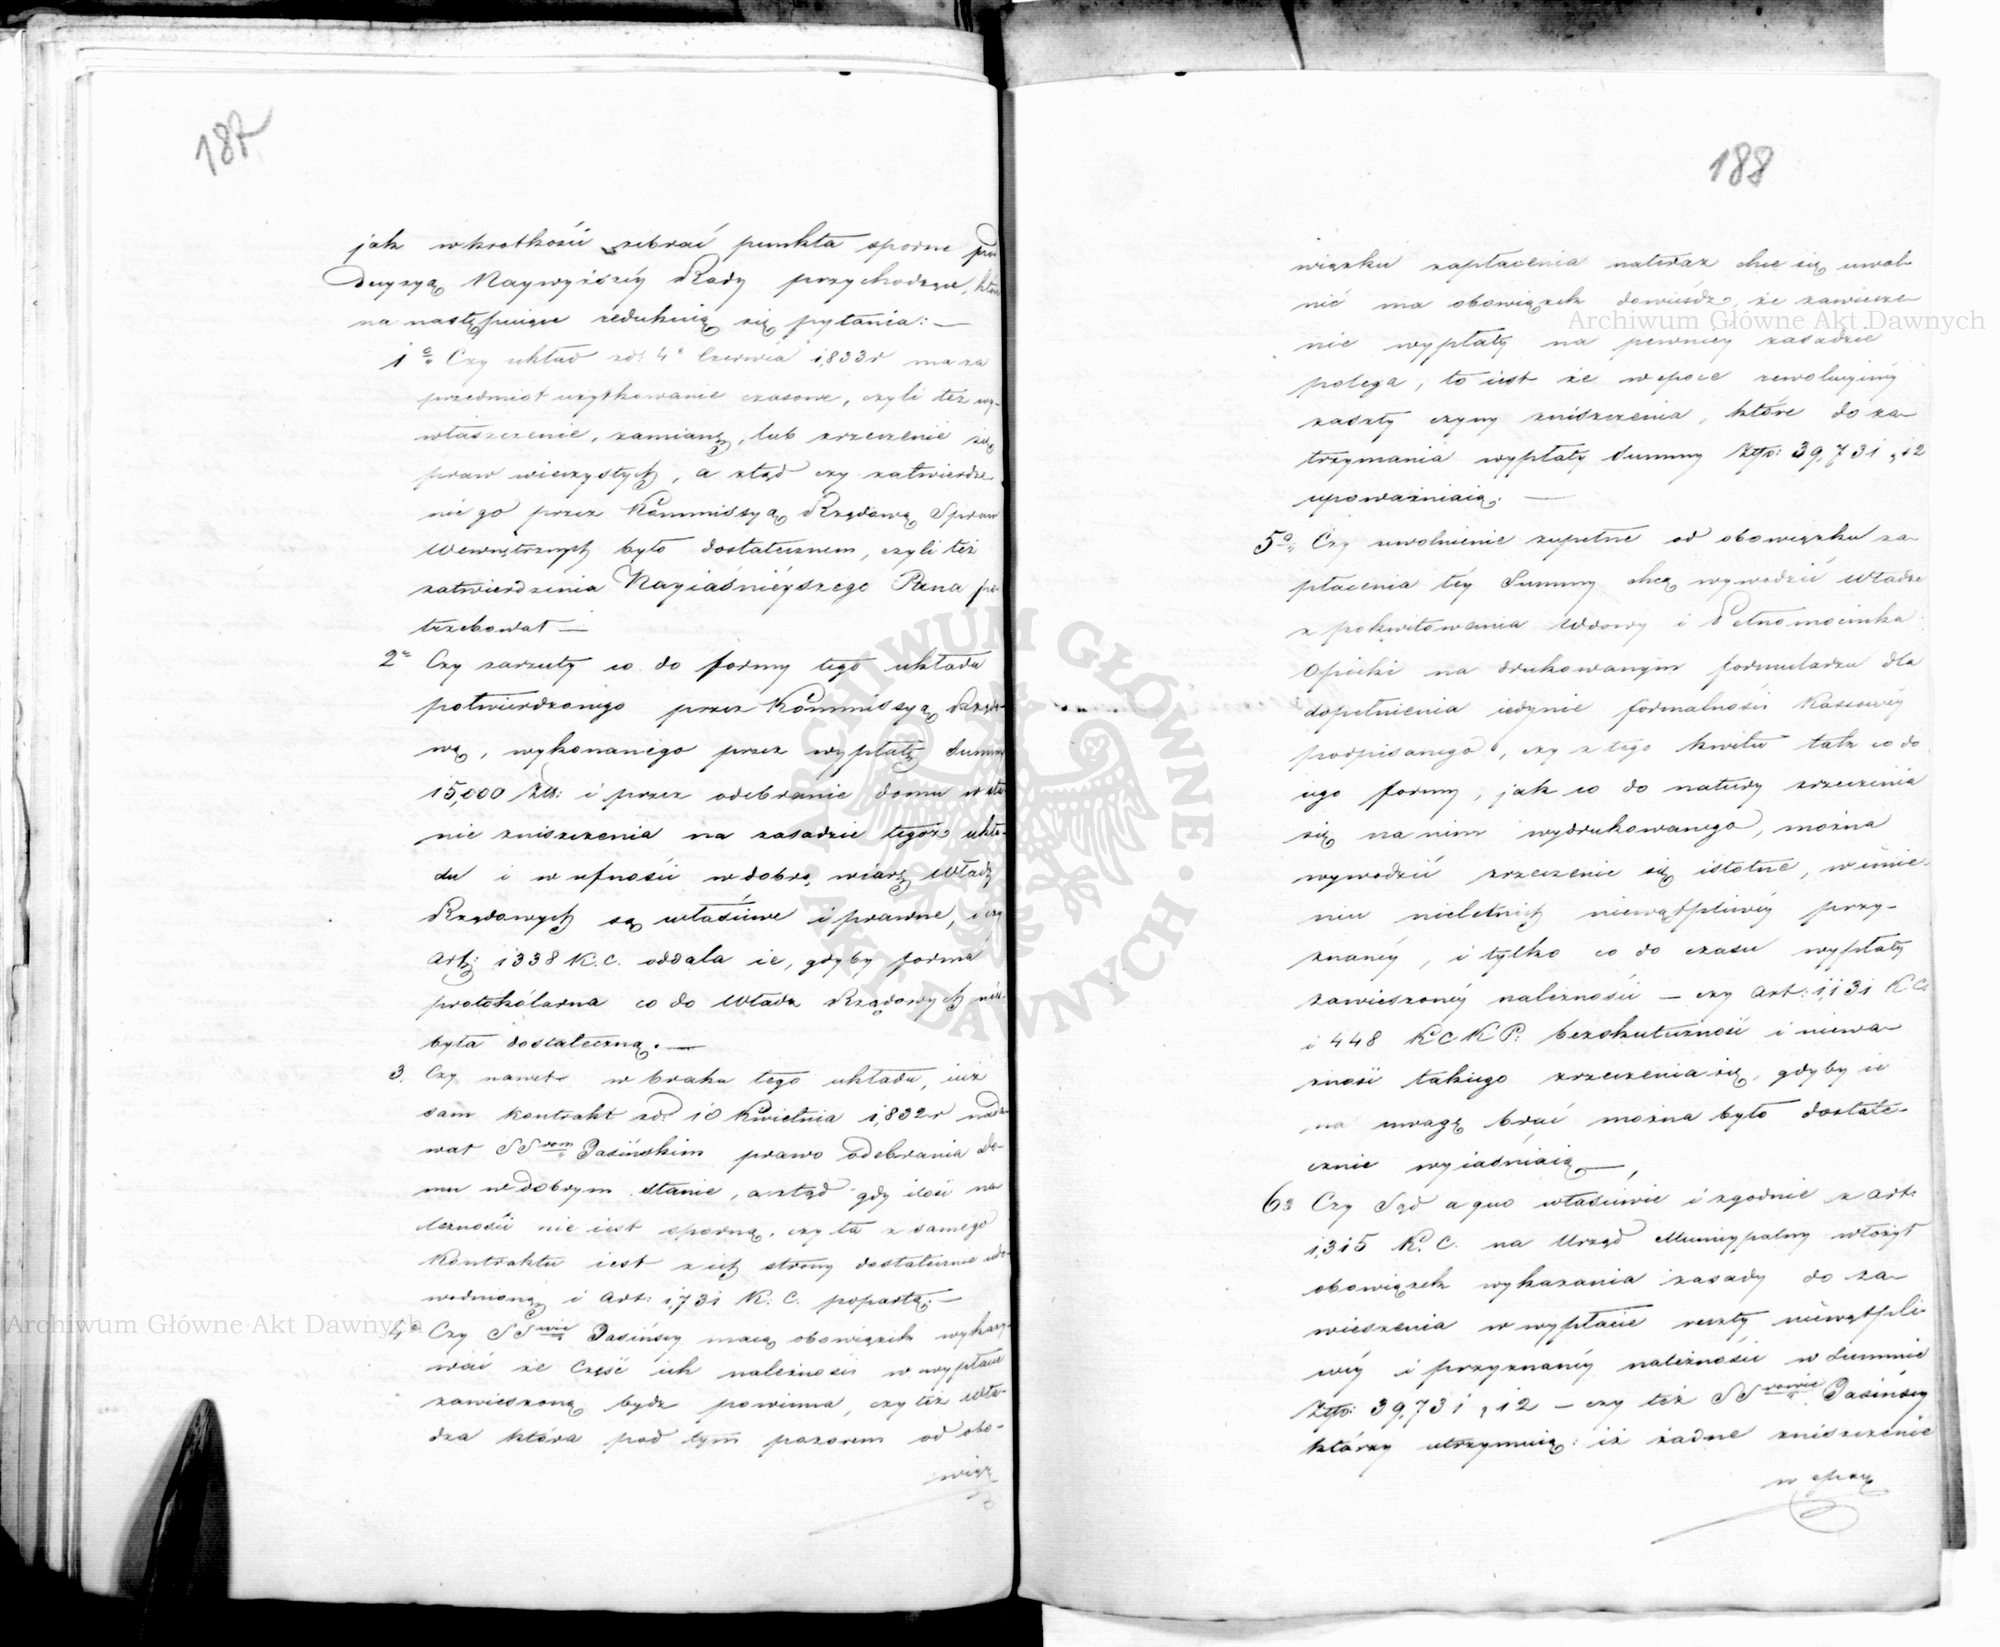 187
jak wkrotkości zebrać punkta sporne pod
Decyzyą Naywyższéy Rady przychodzące, które
na następuiące redukuią się pytania: —
1o Czy układ zd: 4o Czerwca 1833r ma za
przedmiot użytkowanie czasowe, czyli też wy-
właszczenie, zamianę, lub zrzeczenie się
praw wieczystych, a ztąd czy zatwierdze-
nie go przez Kommissyą Rządową Spraw
Wewnętrznych było dostatecznem, czyli też
zatwierdzenia Nayiaśniéyszego Pana po-
trzebował —
2o Czy zarzuty co do formy tego układu
potwierdzonego przez Kommissyą Rządo-
wą, wykonanego przez wypłatę Summy
15,000 Złt: i przez odebranie domu w sta-
nie zniszczenia na zasadzie tegoż ukła-
du i w ufności w dobrą wiarę Władz
Rządowych są właściwe i prawne, i czy
Art: 1338 K.C. oddala ie, gdyby forma
protokólarna co do Władz Rządowych nie-
była dostateczną. —
3. Czy nawet w braku tego układu, iuż
sam kontrakt zd: 10 Kwietnia 1832r nada-
wał SSrom Jasińskim prawo odebrania do-
mu w dobrym stanie, a ztąd gdy ilość na-
leżności nie iest sporną, czy ta z samego
Kontraktu iest z ich strony dostatecznie udo-
wodnioną i Art: 1731 K: C. popartą. —
4o Czy SSwie Jasińscy maią obowiązek wykazy-
wać że Część ich należności w wypłacie
zawieszoną bydź powinna, czy też Wła-
dza która pod tym pozorem od obo-
wiąz
188
wiązku zapłacenia nateraz chce się uwol-
nić ma obowiązek dowieśdź, że zawiesze-
nie wypłaty na pewnéy zasadzie
polega, to iest że w epoce rewolucyinéy
zaszły czyny zniszczenia, które do za-
trzymania wypłaty Summy Złp: 39,731 „ 12
upoważniaią. —
5o Czy uwolnienie zupełne od obowiązku za-
płacenia téy Summy chcą wywodzić Władze
z pokwitowania Wdowy i Pełnomocnika
Opieki na drukowanym formularzu dla
dopełnienia iedynie formalności Kassowéy
podpisanego, czy z tego kwitu tak co do
iego formy, jak co do natury zrzeczenia
się na nim wydrukowanego, można
wywodzić zrzeczenie się istotne, w imie-
niu nieletnich niewątpliwéy przy-
znanéy, i tylko co do czasu wypłaty
zawieszonéy należności — czy Art: 1131 KC.
i 448 KCKP: bezskuteczność i nieważ-
ność takiego zrzeczenia się, gdyby ie
na uwagę brać można było dostate-
cznie wyiaśniaią —,
6o Czy Sąd a quo właściwie i zgodnie z Art:
1315 K. C. na Urząd Municypalny włożył
obowiązek wykazania zasady do za-
wieszenia w wypłacie reszty niewątpli-
wéy i przyznanéy należności w Summie
Złp: 39,731 „ 12 — czy też SSrowie Jasińscy
którzy utrzymuią: iż żadne zniszczenie
w epoce
Archiwum Główne Akt Dawnych
Archiwum Główne Akt Dawnych
ARCHIWUM GŁÓWNE · AKT DAWNYCH ·